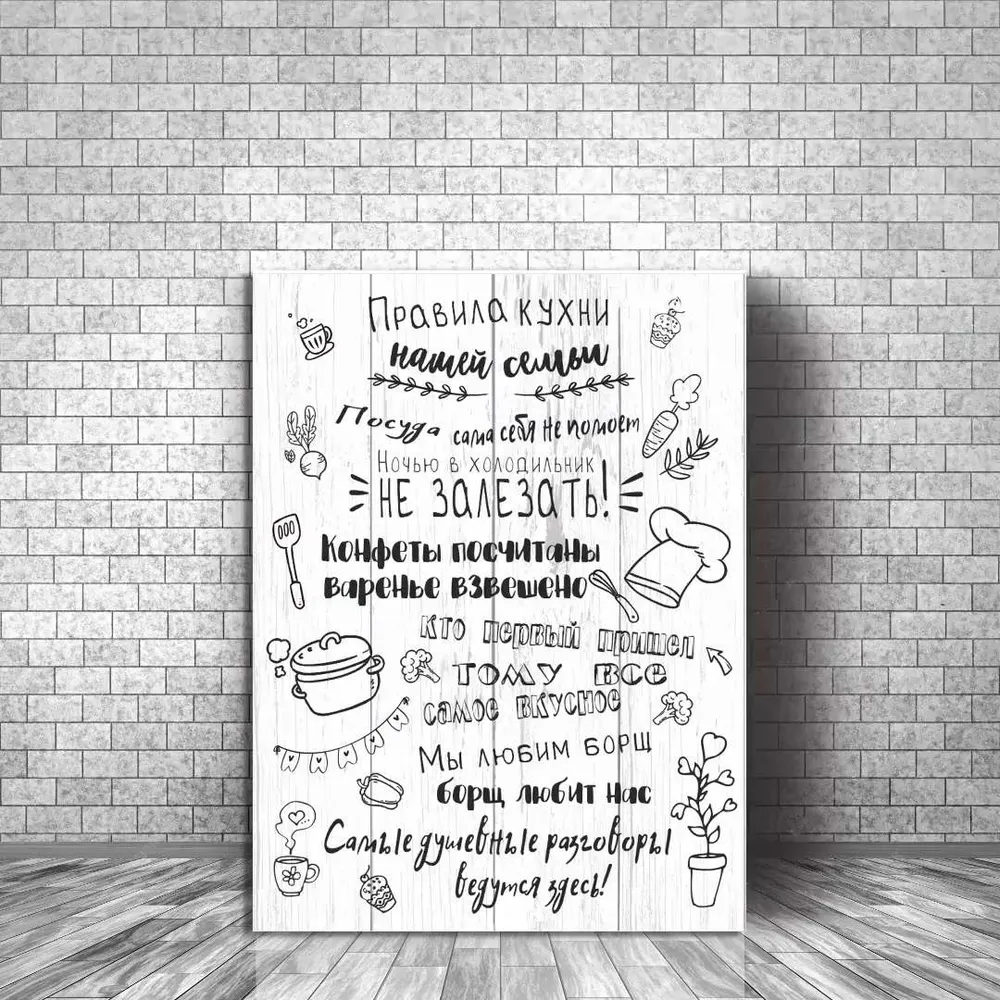 Правила кухни
нашей семьи
Посуда сама себя не помоет
Ночью в холодильник
НЕ ЗАЛЕЗАТЬ!
Конфеты посчитаны
варенье взвешено
кто первый пришел
тому все
самое вкусное
Мы любим борщ
борщ любит нас
Самые душевные разговоры
ведутся здесь!